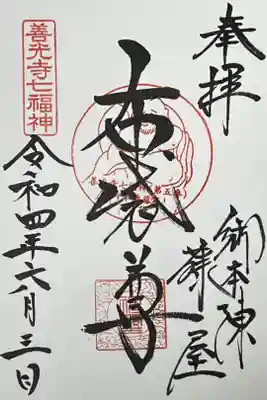 奉拝
御本陳
藤屋
布袋尊
善光寺七福神
令和四年六月三日